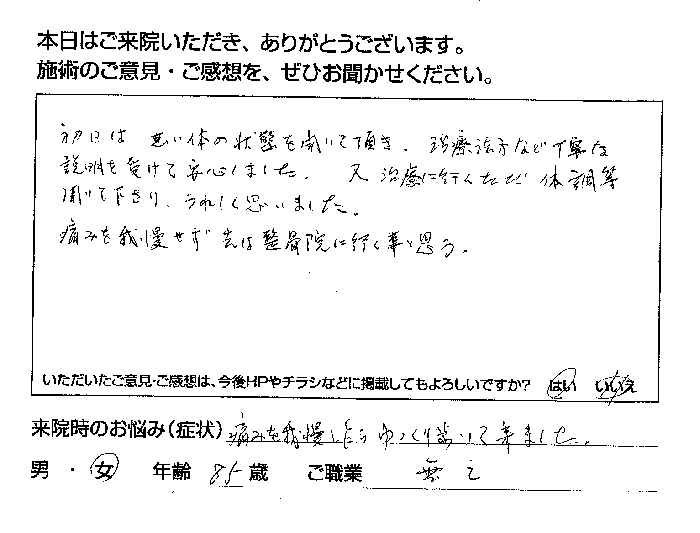 本日はご来院いただき、ありがとうございます。
施術のご意見・ご感想を、ぜひお聞かせください。
初日は 悪い体の状態を聞いて頂き、治療法等など丁寧な
説明を受けて安心しました。 又 治療に行くたび 体調等
聞いて下さり、うれしく思いました。
痛みを我慢せず 先は整骨院に行く事と思う。
いただいたご意見・ご感想は、今後HPやチラシなどに掲載してもよろしいですか? はい いいえ
来院時のお悩み（症状） 痛みを我慢したら ゆっくり歩いて来ました。
男 ・ 女 年齢 85 歳 ご職業